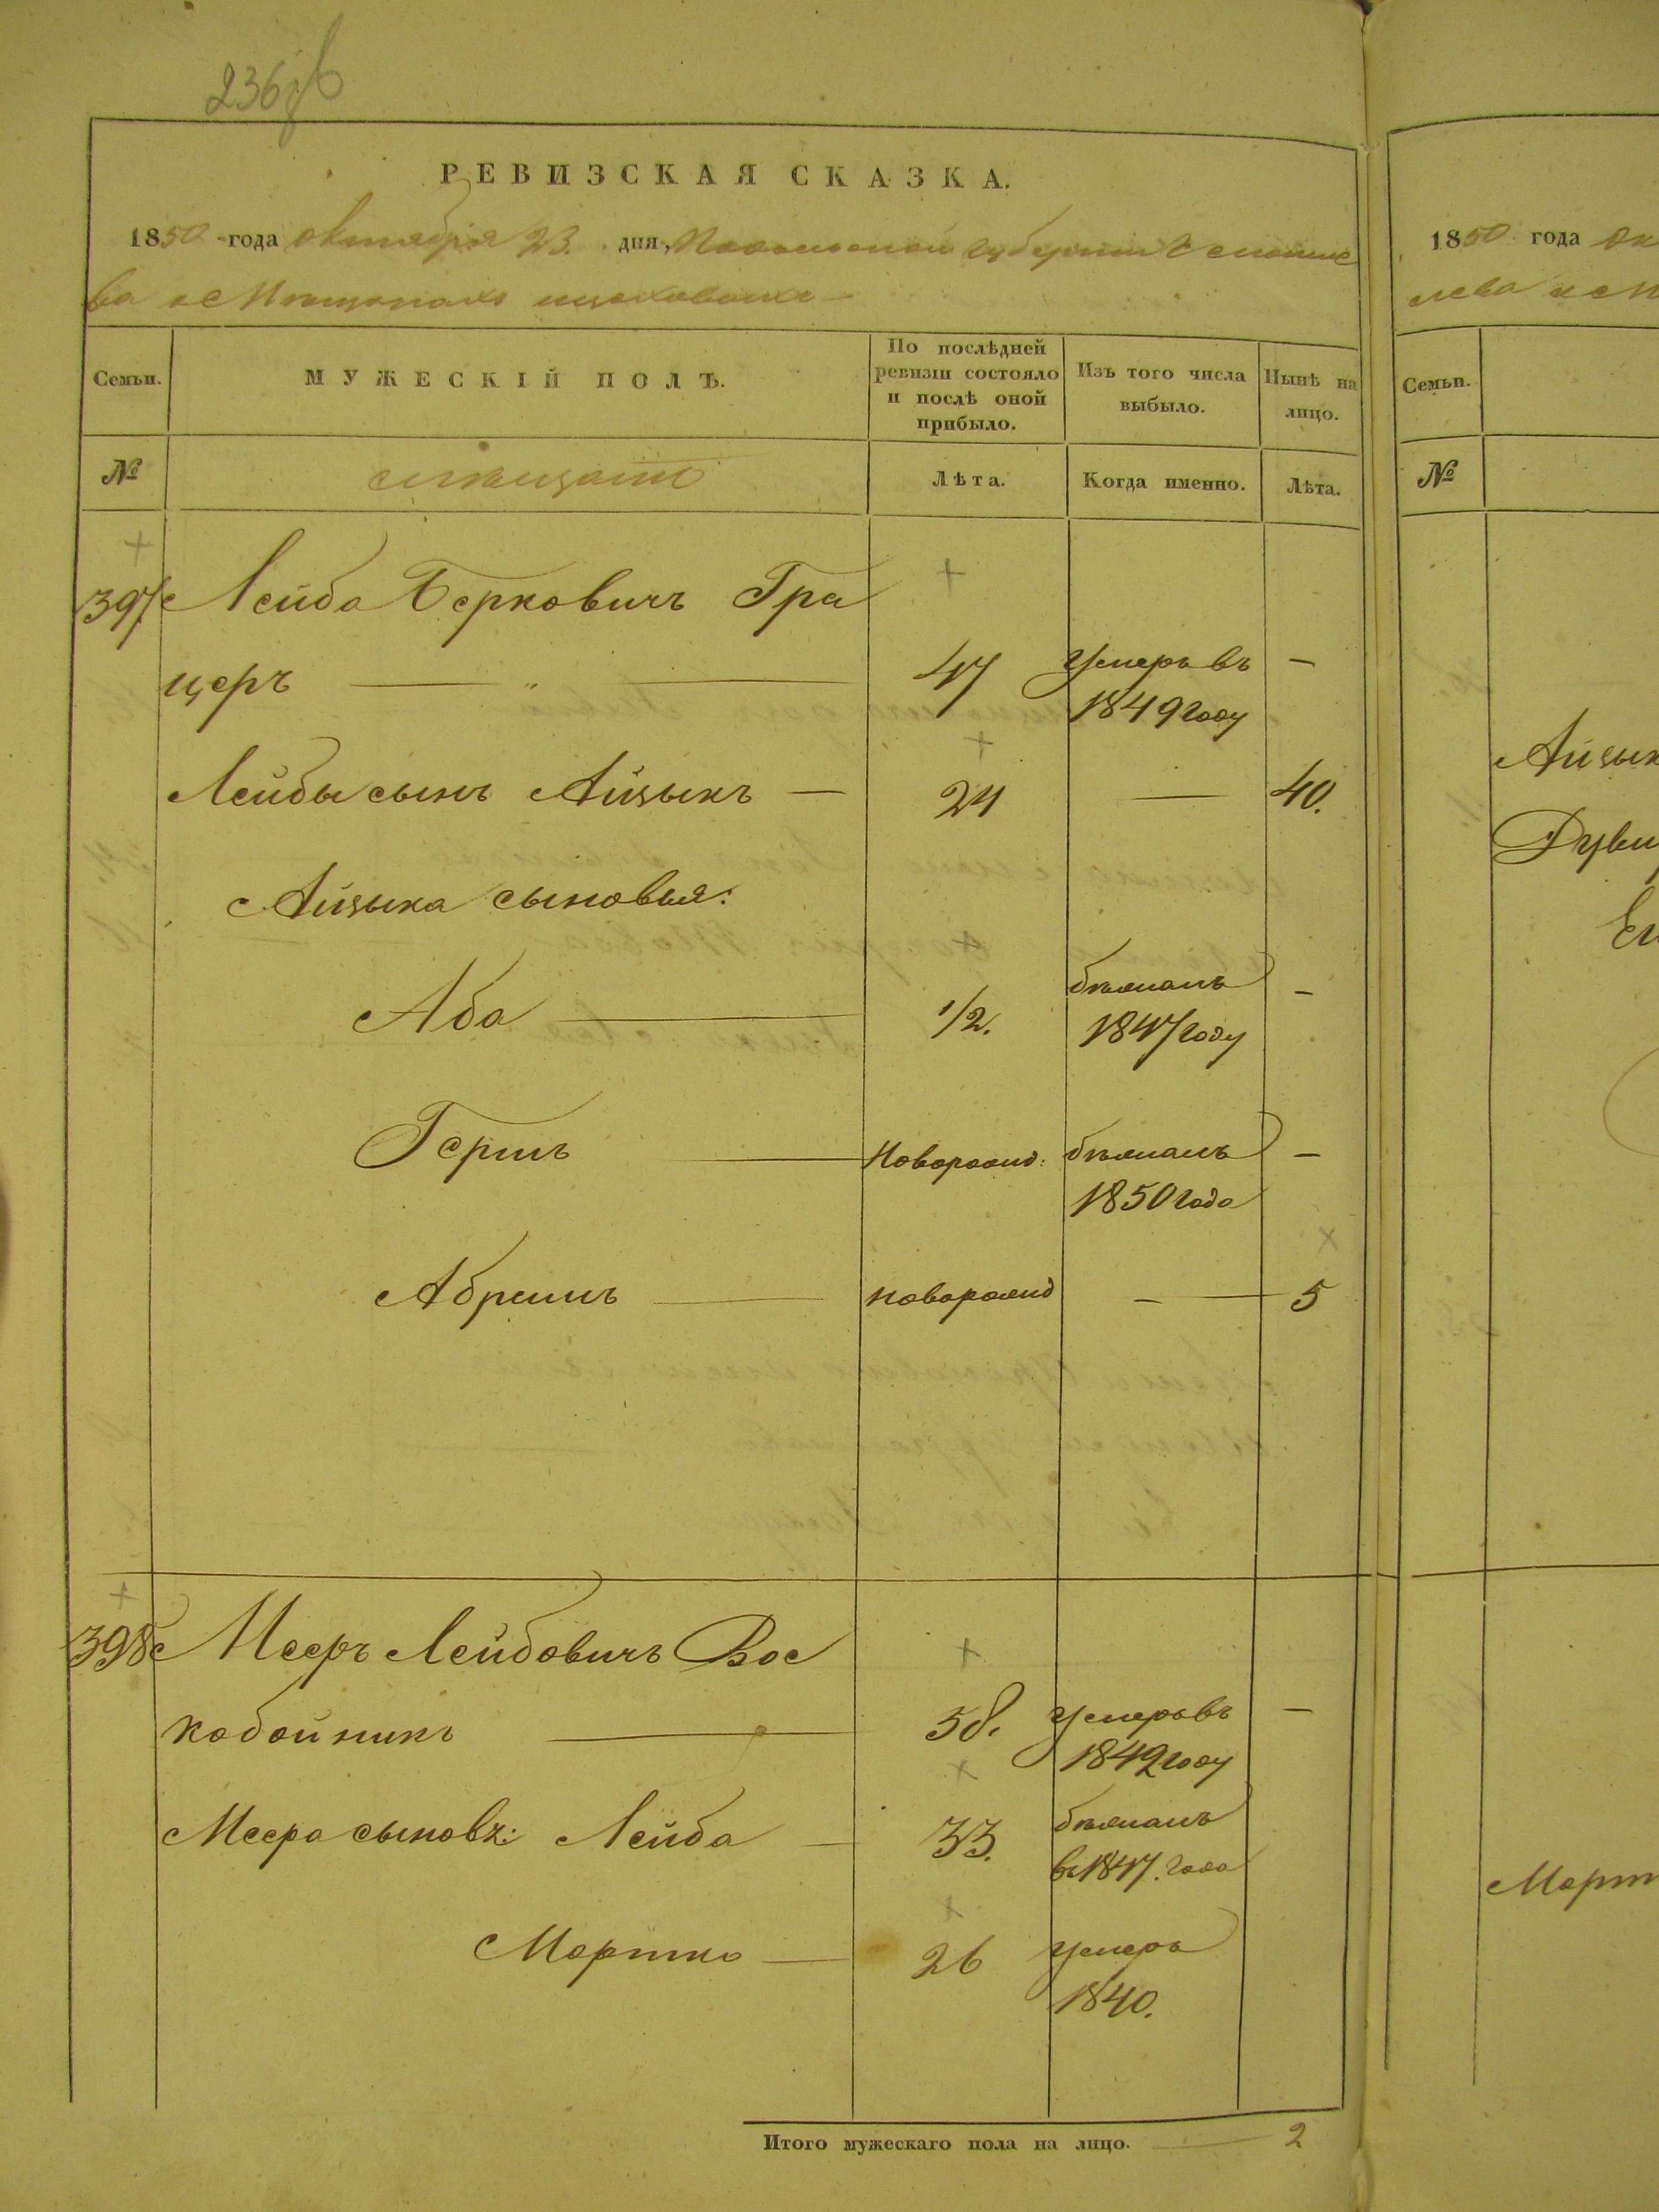 236об
РЕВИЗСКАЯ СКАЗКА.
1850 года октября 23. дня, Подольской губерніи
ва о Мѣщанахъ
Семьи.
МУЖЕСКІЙ ПОЛЪ.
По послѣдней ревизіи состояло и послѣ оной прибыло.
Изъ того числа выбыло.
Нынѣ на лицо.
№
Лѣта.
Когда именно.
Лѣта.
397 Лейба Берковичъ Гра
церъ — " — 47 Умеръ въ —
1849 году
Лейбы сынъ Айзыкъ — 24 — 40.
Айзыка сыновья:
Аба — 1/2. бѣжалъ —
1847 году
Гершъ — Новорожд: бѣжалъ —
1850 года
Абрамъ — новорожд — 5
398 Мееръ Лейбовичъ Вос
кобойникъ — 58. Умеръ въ —
1849 году
Меера сыновъ: Лейба — 33. бѣжалъ
въ 1847. года
Мортко — 26 умеръ
1840.
Итого мужескаго пола на лицо. — 2
1850 года Ок
Семьи.
№
Айзык
Март